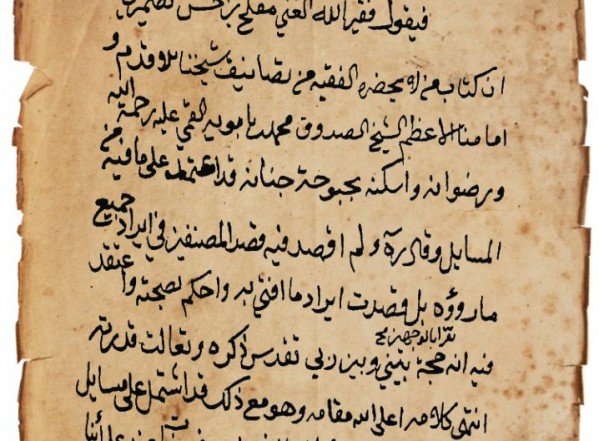 فيقول فقير الله الغني مفلح بن حسن
ان كتاب من لا يحضره الفقيه من تصانيف شيخنا الاقدم و
امامنا الاعظم الشيخ الصدوق محمد بن بابويه القمي عليه رحمة الله
ورضوانه واسكنه بحبوحة جنانه قد اعتمد على ما فيه من
المسايل وقال ره ولم اقصد فيه قصد المصنفين في ايراد جميع
ما رووه بل قصدت ايراد ما افتي به واحكم بصحته واعتقد
فيه انه حجة بيني وبين ربي تقدس ذكره وتعالت قدرته
انتهى كلامه اعلى الله مقامه وهو مع ذلك قد اشتمل على مسايل